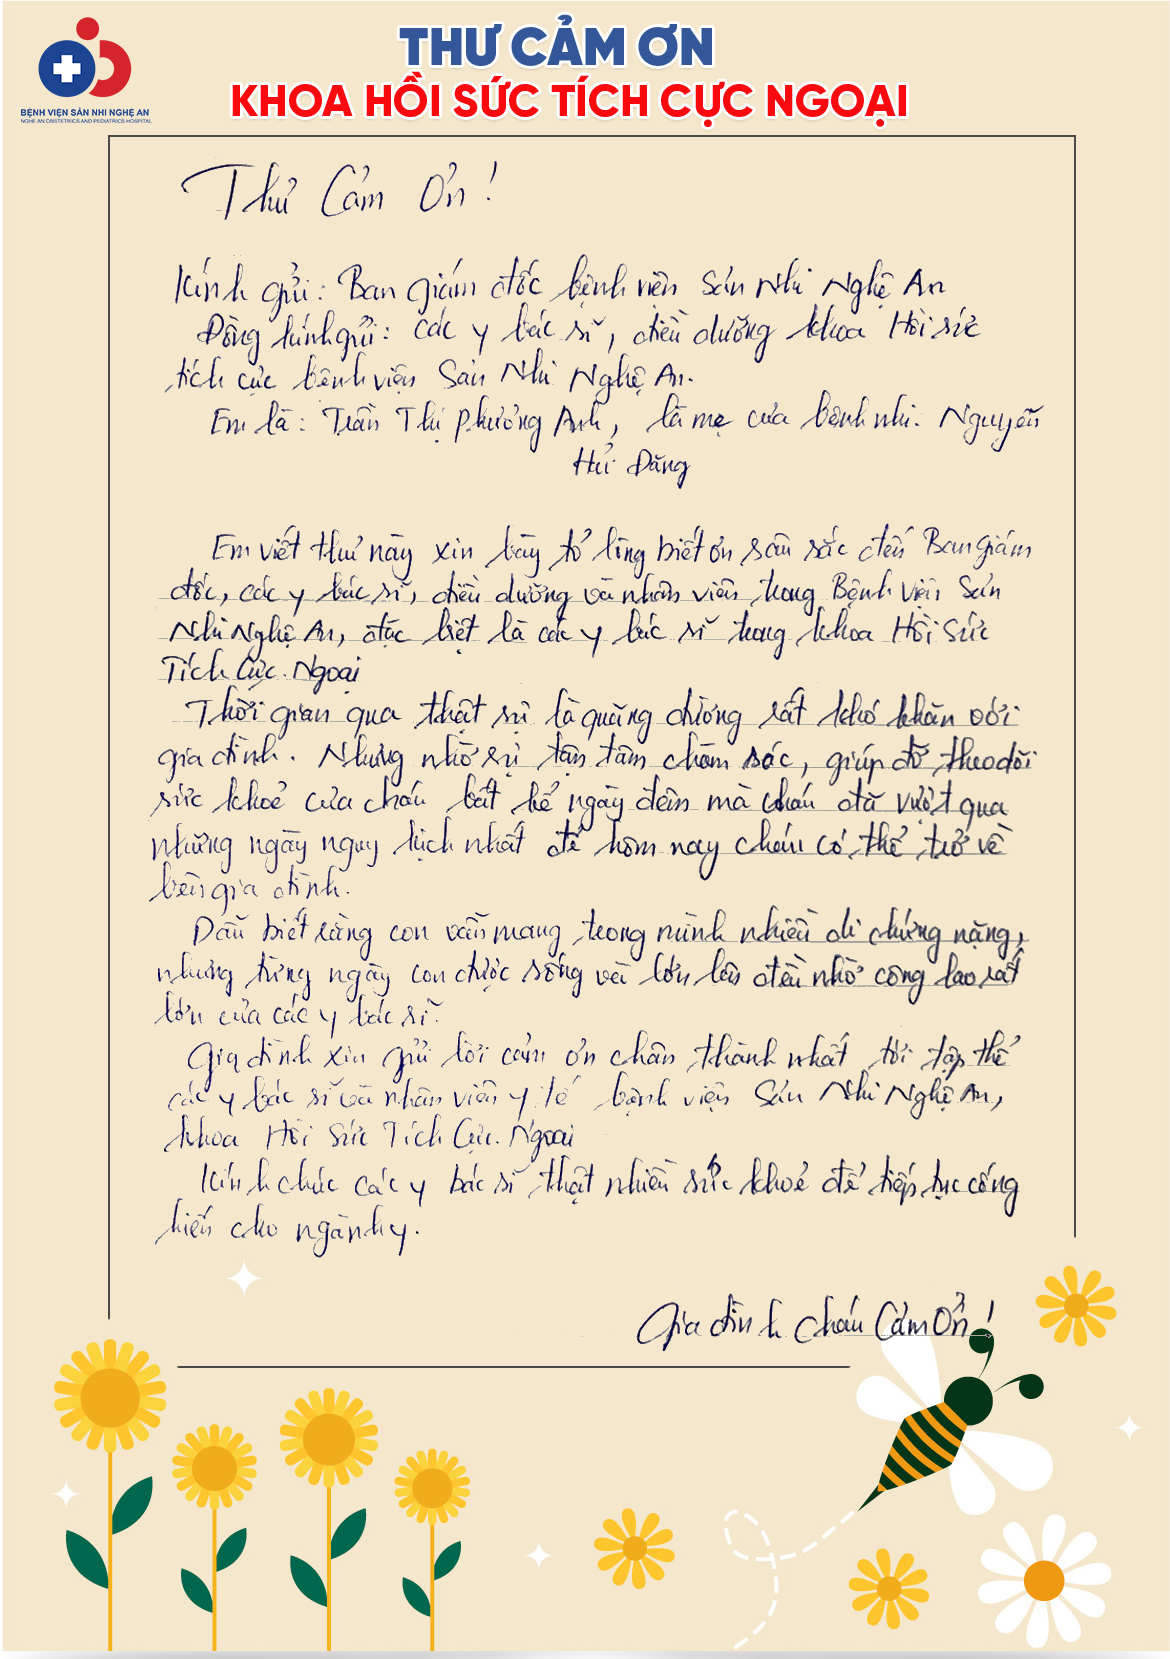 THƯ CẢM ƠN
KHOA HỒI SỨC TÍCH CỰC NGOẠI
BỆNH VIỆN SẢN NHI NGHỆ AN
NGHE AN OBSTETRICS AND PEDIATRICS HOSPITAL
Thư Cảm Ơn!
Kính gửi: Ban giám đốc bệnh viện Sản Nhi Nghệ An
Đồng kính gửi: các y bác sĩ, điều dưỡng khoa Hồi sức
tích cực bệnh viện Sản Nhi Nghệ An.
Em là: Trần Thị Phương Anh, là mẹ của bệnh nhi: Nguyễn
Hải Đăng
Em viết thư này xin bày tỏ lòng biết ơn sâu sắc đến Ban giám
đốc, các y bác sĩ, điều dưỡng và nhân viên trong Bệnh viện Sản
Nhi Nghệ An, đặc biệt là các y bác sĩ trong khoa Hồi Sức
Tích Cực. Ngoại
Thời gian qua thật sự là quãng đường rất khó khăn với
gia đình. Nhưng nhờ sự tận tâm chăm sóc, giúp đỡ, theo dõi
sức khoẻ của cháu bất kể ngày đêm mà cháu đã vượt qua
những ngày nguy kịch nhất để hôm nay cháu có thể trở về
bên gia đình.
Dẫu biết rằng con vẫn mang trong mình nhiều di chứng nặng,
nhưng từng ngày con được sống và lớn lên đều nhờ công lao rất
lớn của các y bác sĩ.
Gia đình xin gửi lời cảm ơn chân thành nhất tới tập thể
các y bác sĩ và nhân viên y tế bệnh viện Sản Nhi Nghệ An,
khoa Hồi Sức Tích Cực. Ngoại
Kính chúc các y bác sĩ thật nhiều sức khoẻ để tiếp tục cống
hiến cho ngành y.
Gia đình cháu Cảm Ơn!